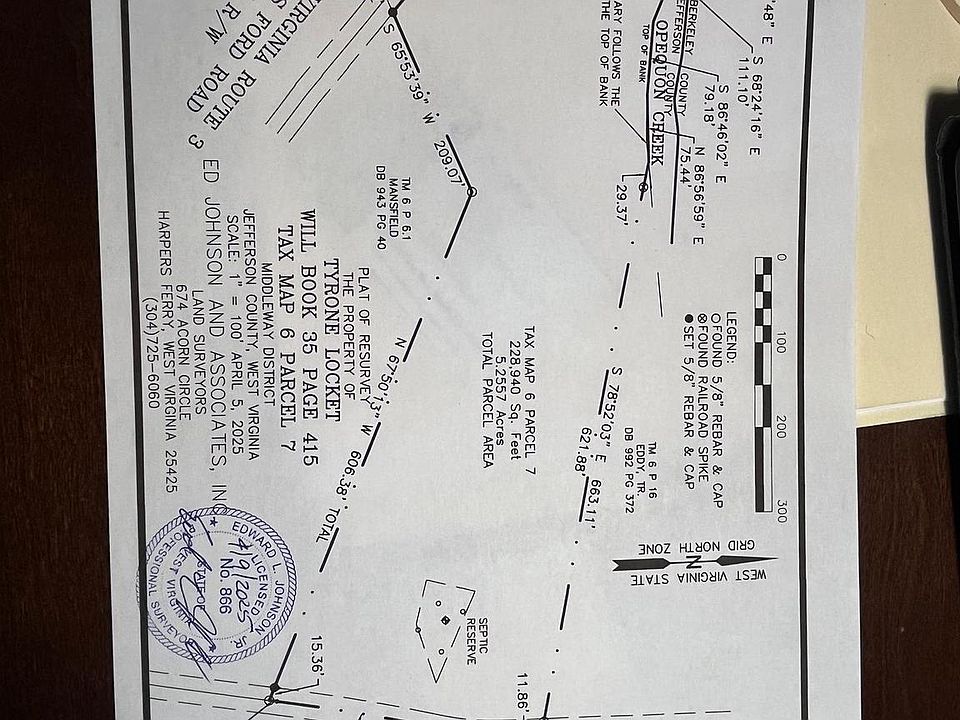 '48" E
S 68°24'16" E
111.10'
S 86°46'02" E
79.18'
N 86°56'59" E
75.44'
BERKELEY COUNTY
JEFFERSON COUNTY
OPEQUON CREEK
TOP OF BANK
ARY FOLLOWS THE
THE TOP OF BANK
29.37'
0 100 200 300
LEGEND:
○FOUND 5/8" REBAR & CAP
⊗FOUND RAILROAD SPIKE
●SET 5/8" REBAR & CAP
WEST VIRGINIA STATE
GRID NORTH ZONE
N
TM 6 P 16
EDDY, TR.
DB 992 PG 372
S 78°52'03" E
621.88'
663.11'
TAX MAP 6 PARCEL 7
228,940 Sq. Feet
5.2557 Acres
TOTAL PARCEL AREA
SEPTIC
RESERVE
11.86'
S 65°53'39" W
209.07'
TM 6 P 6.1
MANSFIELD
DB 943 PG 40
N 67°50'13" W
606.38' TOTAL
15.36'
VIRGINIA ROUTE 3
S FORD ROAD
R/W
PLAT OF RESURVEY
THE PROPERTY OF
TYRONE LOCKET
WILL BOOK 35 PAGE 415
TAX MAP 6 PARCEL 7
MIDDLEWAY DISTRICT
JEFFERSON COUNTY, WEST VIRGINIA
SCALE: 1" = 100' APRIL 5, 2025
ED JOHNSON AND ASSOCIATES, INC
LAND SURVEYORS
674 ACORN CIRCLE
HARPERS FERRY, WEST VIRGINIA 25425
(304)725-6060
EDWARD L. JOHNSON JR.
LICENSED
No. 866
4/9/2025
STATE OF
WEST VIRGINIA
PROFESSIONAL SURVEYOR